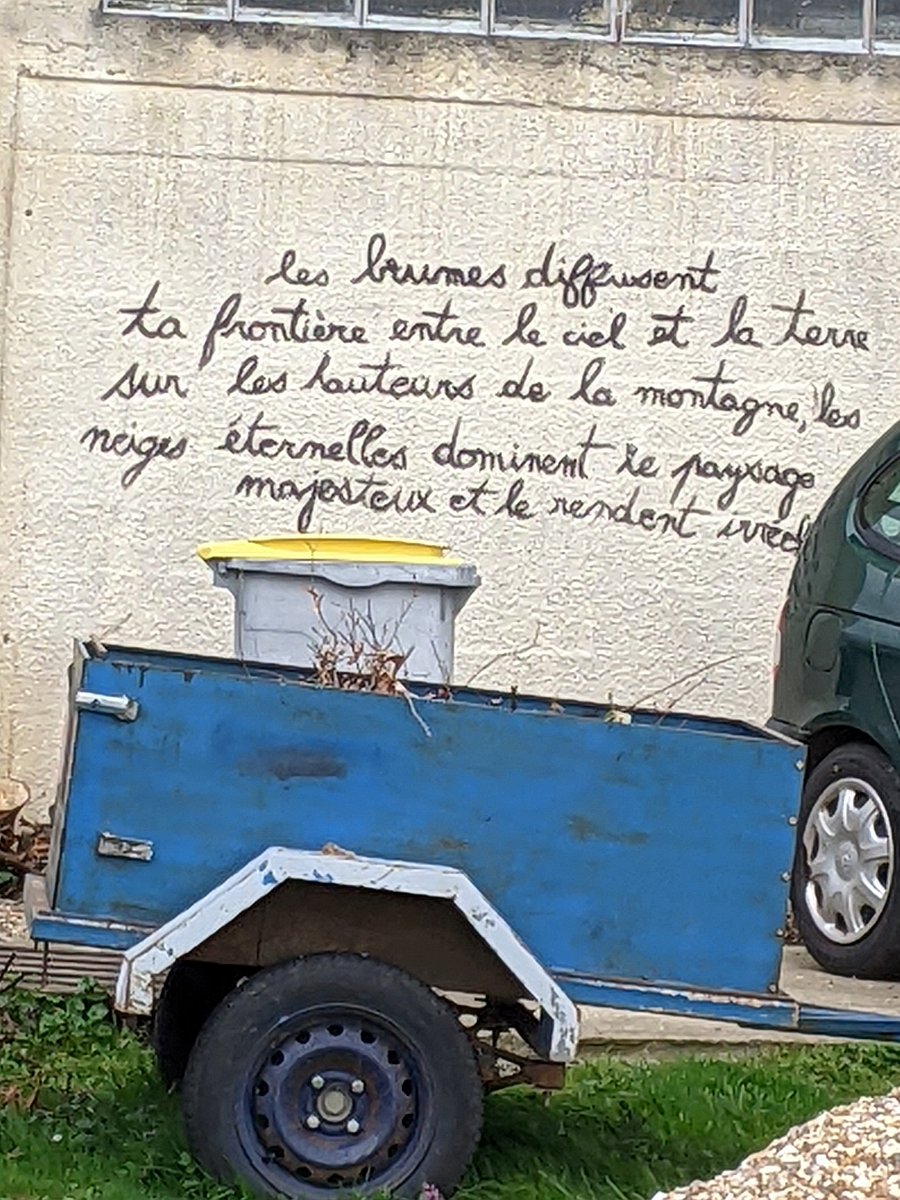 les brumes diffusent
ta frontière entre le ciel et la terre
sur les hauteurs de la montagne, les
neiges éternelles dominent le paysage
majesteux et le rendent